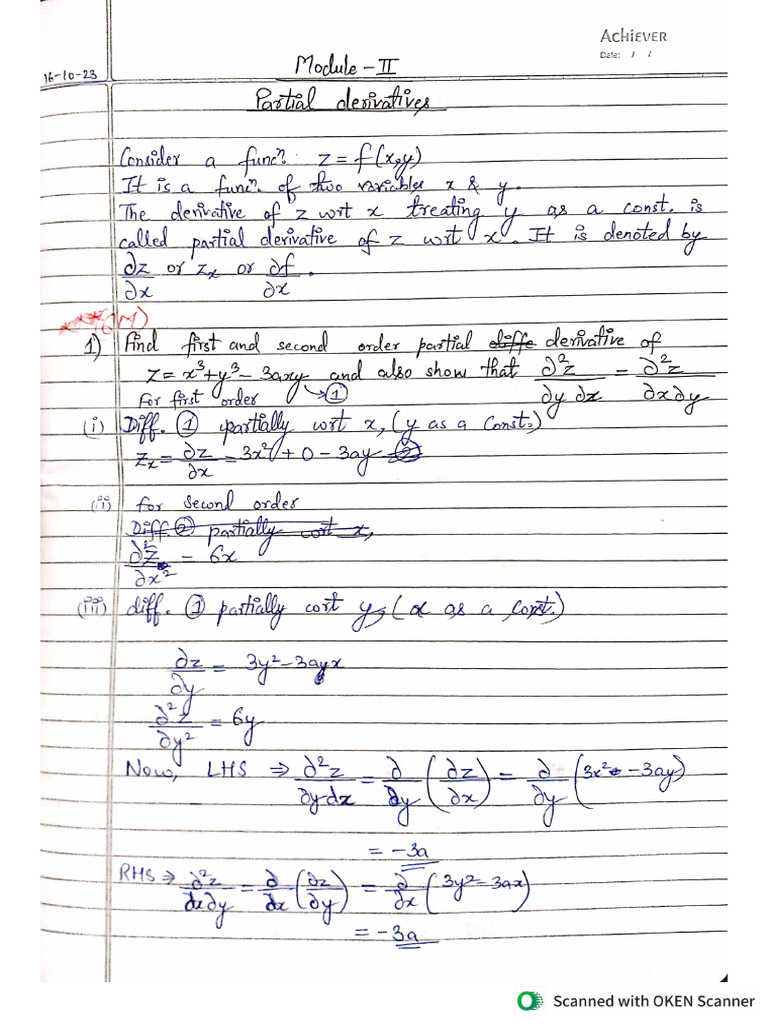 ACHIEVER
Date: / /
16-10-23
Module - II
Partial derivatives
Consider a funcⁿ. z = f(x,y)
It is a funcⁿ. of two variables x & y.
The derivative of z wrt x treating y as a const. is
called partial derivative of z wrt x. It is denoted by
∂z/∂x or zₓ or ∂f/∂x .
(6M)
1) Find first and second order partial diffe derivative of
z = x³+y³-3axy → ① and also show that ∂²z/∂y ∂x = ∂²z/∂x∂y
For first order
(i) Diff. ① partially wrt x, (y as a const.)
zₓ = ∂z/∂x = 3x² + 0 - 3ay - ②
(ii) for second order
Diff. ② partially wrt x,
∂²z/∂x² - 6x
(iii) diff. ① partially wrt y, (x as a const.)
∂z/∂y = 3y² - 3ayx
∂²z/∂y² = 6y
Now, LHS ⇒ ∂²z/∂y∂x = ∂/∂y (∂z/∂x) = ∂/∂y (3x² - 3ay)
= -3a
RHS ⇒ ∂²z/∂x∂y = ∂/∂x (∂z/∂y) = ∂/∂x (3y² - 3ax)
= -3a
Scanned with OKEN Scanner